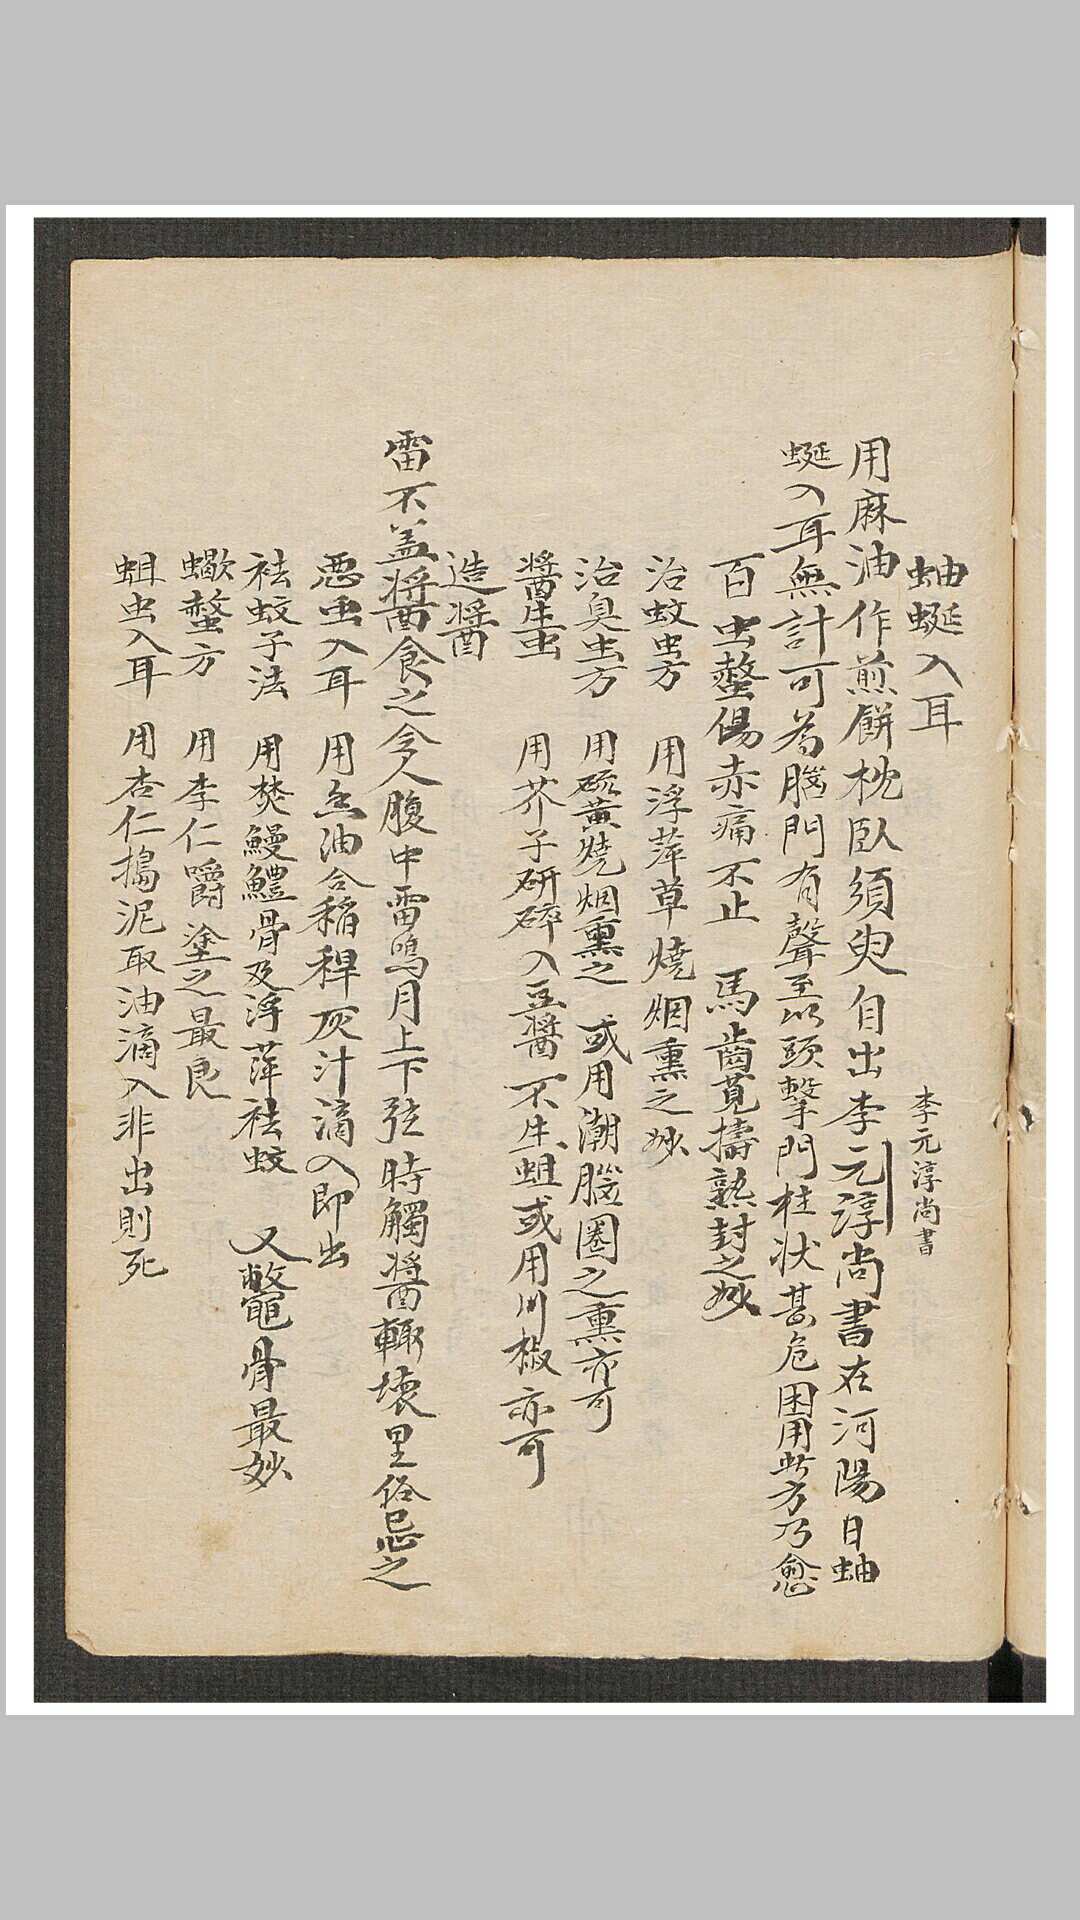 蚰蜒入耳 李元淳尚書
用麻油作煎餅枕臥須臾自出李元淳尚書在河陽日蚰
蜒入耳無計可為腦門有聲至以頭擊門柱狀甚危困用此方乃愈
百虫螫傷赤痛不止 馬齒莧擣熟封之妙
治蚊虫方 用浮萍草燒烟熏之妙
治臭虫方 用硫黃燒烟熏之 或用潮腦圈之熏亦可
醬生虫 用芥子研碎入豆醬不生蛆或用川椒亦可
造醬
雷不盖醬食之令人腹中雷鳴月上下弦時觸醬輒壞里俗忌之
惡虫入耳 用香油合稻稈灰汁滴入即出
袪蚊子法 用焚鰻鱧骨及浮萍袪蚊 又鼈骨最妙
蠍螫方 用李仁嚼塗之最良
蛆虫入耳 用杏仁搗泥取油滴入非出則死